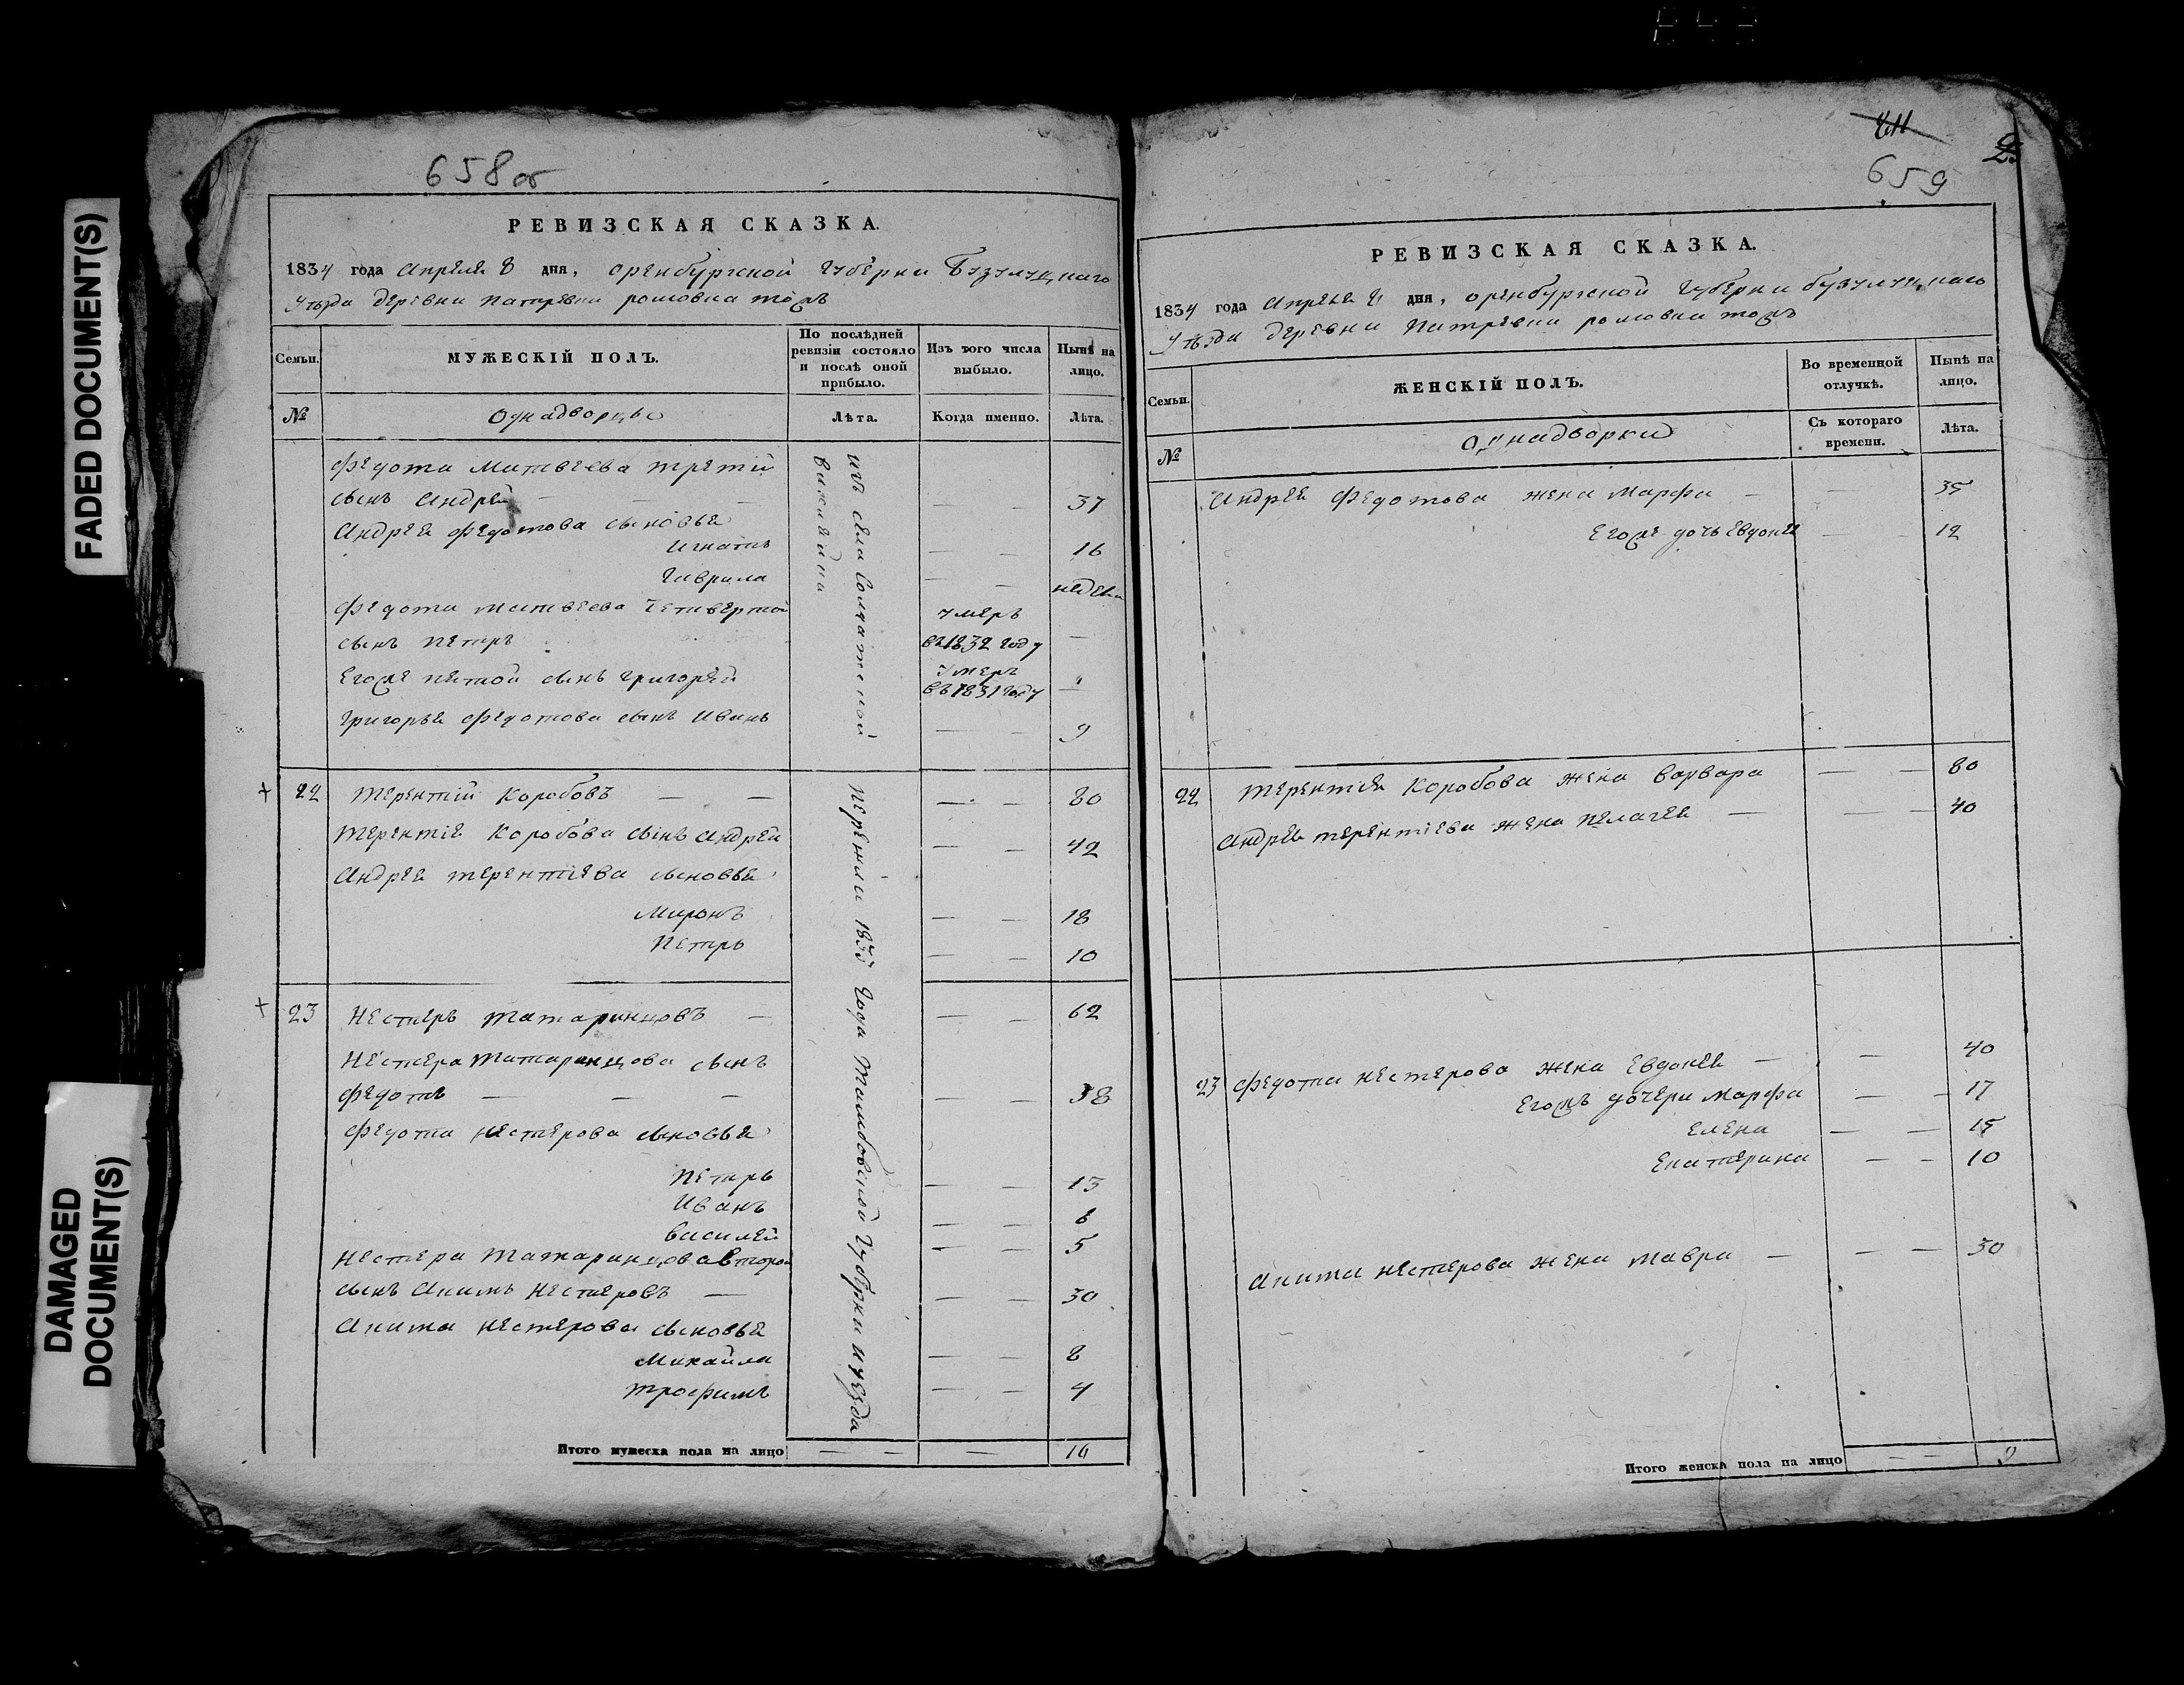 FADED DOCUMENT(S)
DAMAGED DOCUMENT(S)
658 об
РЕВИЗСКАЯ СКАЗКА.
1834 года Апреля 8 дня, оренбургской губерни Бузулуцкаго
уезда деревни
Семьи. МУЖЕСКІЙ ПОЛЪ. По послѣдней ревизіи состояло и послѣ оной прибыло. Изъ того числа выбыло. Нынѣ на лицо.
№ Однадворцы Лѣта. Когда именно. Лѣта.
Федота Матвеева третій
сынъ Андрей — — — — — 37
Андрея Федотова сыновья
Игнатъ — — 16
Гаврила — —
Федота Матвеева четвертой умеръ
сынъ Петръ въ 1832 году —
Егоже пятой сынъ Григорей умеръ въ 1831 году "
Григорья Федотова сынъ Иванъ — — 9
изъ села Солдатской
22 Терентій Коробовъ — — — — 80
Терентіе Коробова сынъ Андрей — — 42
Андрея Терентіева сыновья
Миронъ — — 18
Петръ — — 10
23 Нестеръ Татаринцовъ — — — 62
Нестера Татаринцова сынъ
Федотъ — — — — — 38
Федота Нестерова сыновья
Петръ — — 13
Иванъ — — 8
Василей — — 5
Нестера Татаринцова второй
сынъ Акимъ Нестеровъ — — — 30
Акима Нестерова сыновья
Михайла — — 8
Трофимъ — — 4
1833 года Тамбовской губерни и уезда
Итого мужеска пола на лицо — — — 14
659
РЕВИЗСКАЯ СКАЗКА.
1834 года Апреля 8 дня, оренбургской губерни бузулуцкаго
уезда деревни
Семьи. ЖЕНСКІЙ ПОЛЪ. Во временной отлучкѣ. Нынѣ на лицо.
№ Однадворки Съ котораго времени. Лѣта.
Андрея Федотова жена Марфа — — 35
Егоже дочь Евдокия — — 12
22 Терентія Коробова жена Варвара — — 80
Андрея Терентіева жена Пелагея — — — 40
23 Федота Нестерова жена Евдокея — — 40
Егожъ дочери Марфа — — 17
Елена — — 15
Екатерина — — 10
Акима Нестерова жена Мавра — — — 30
Итого женска пола на лицо — — 9